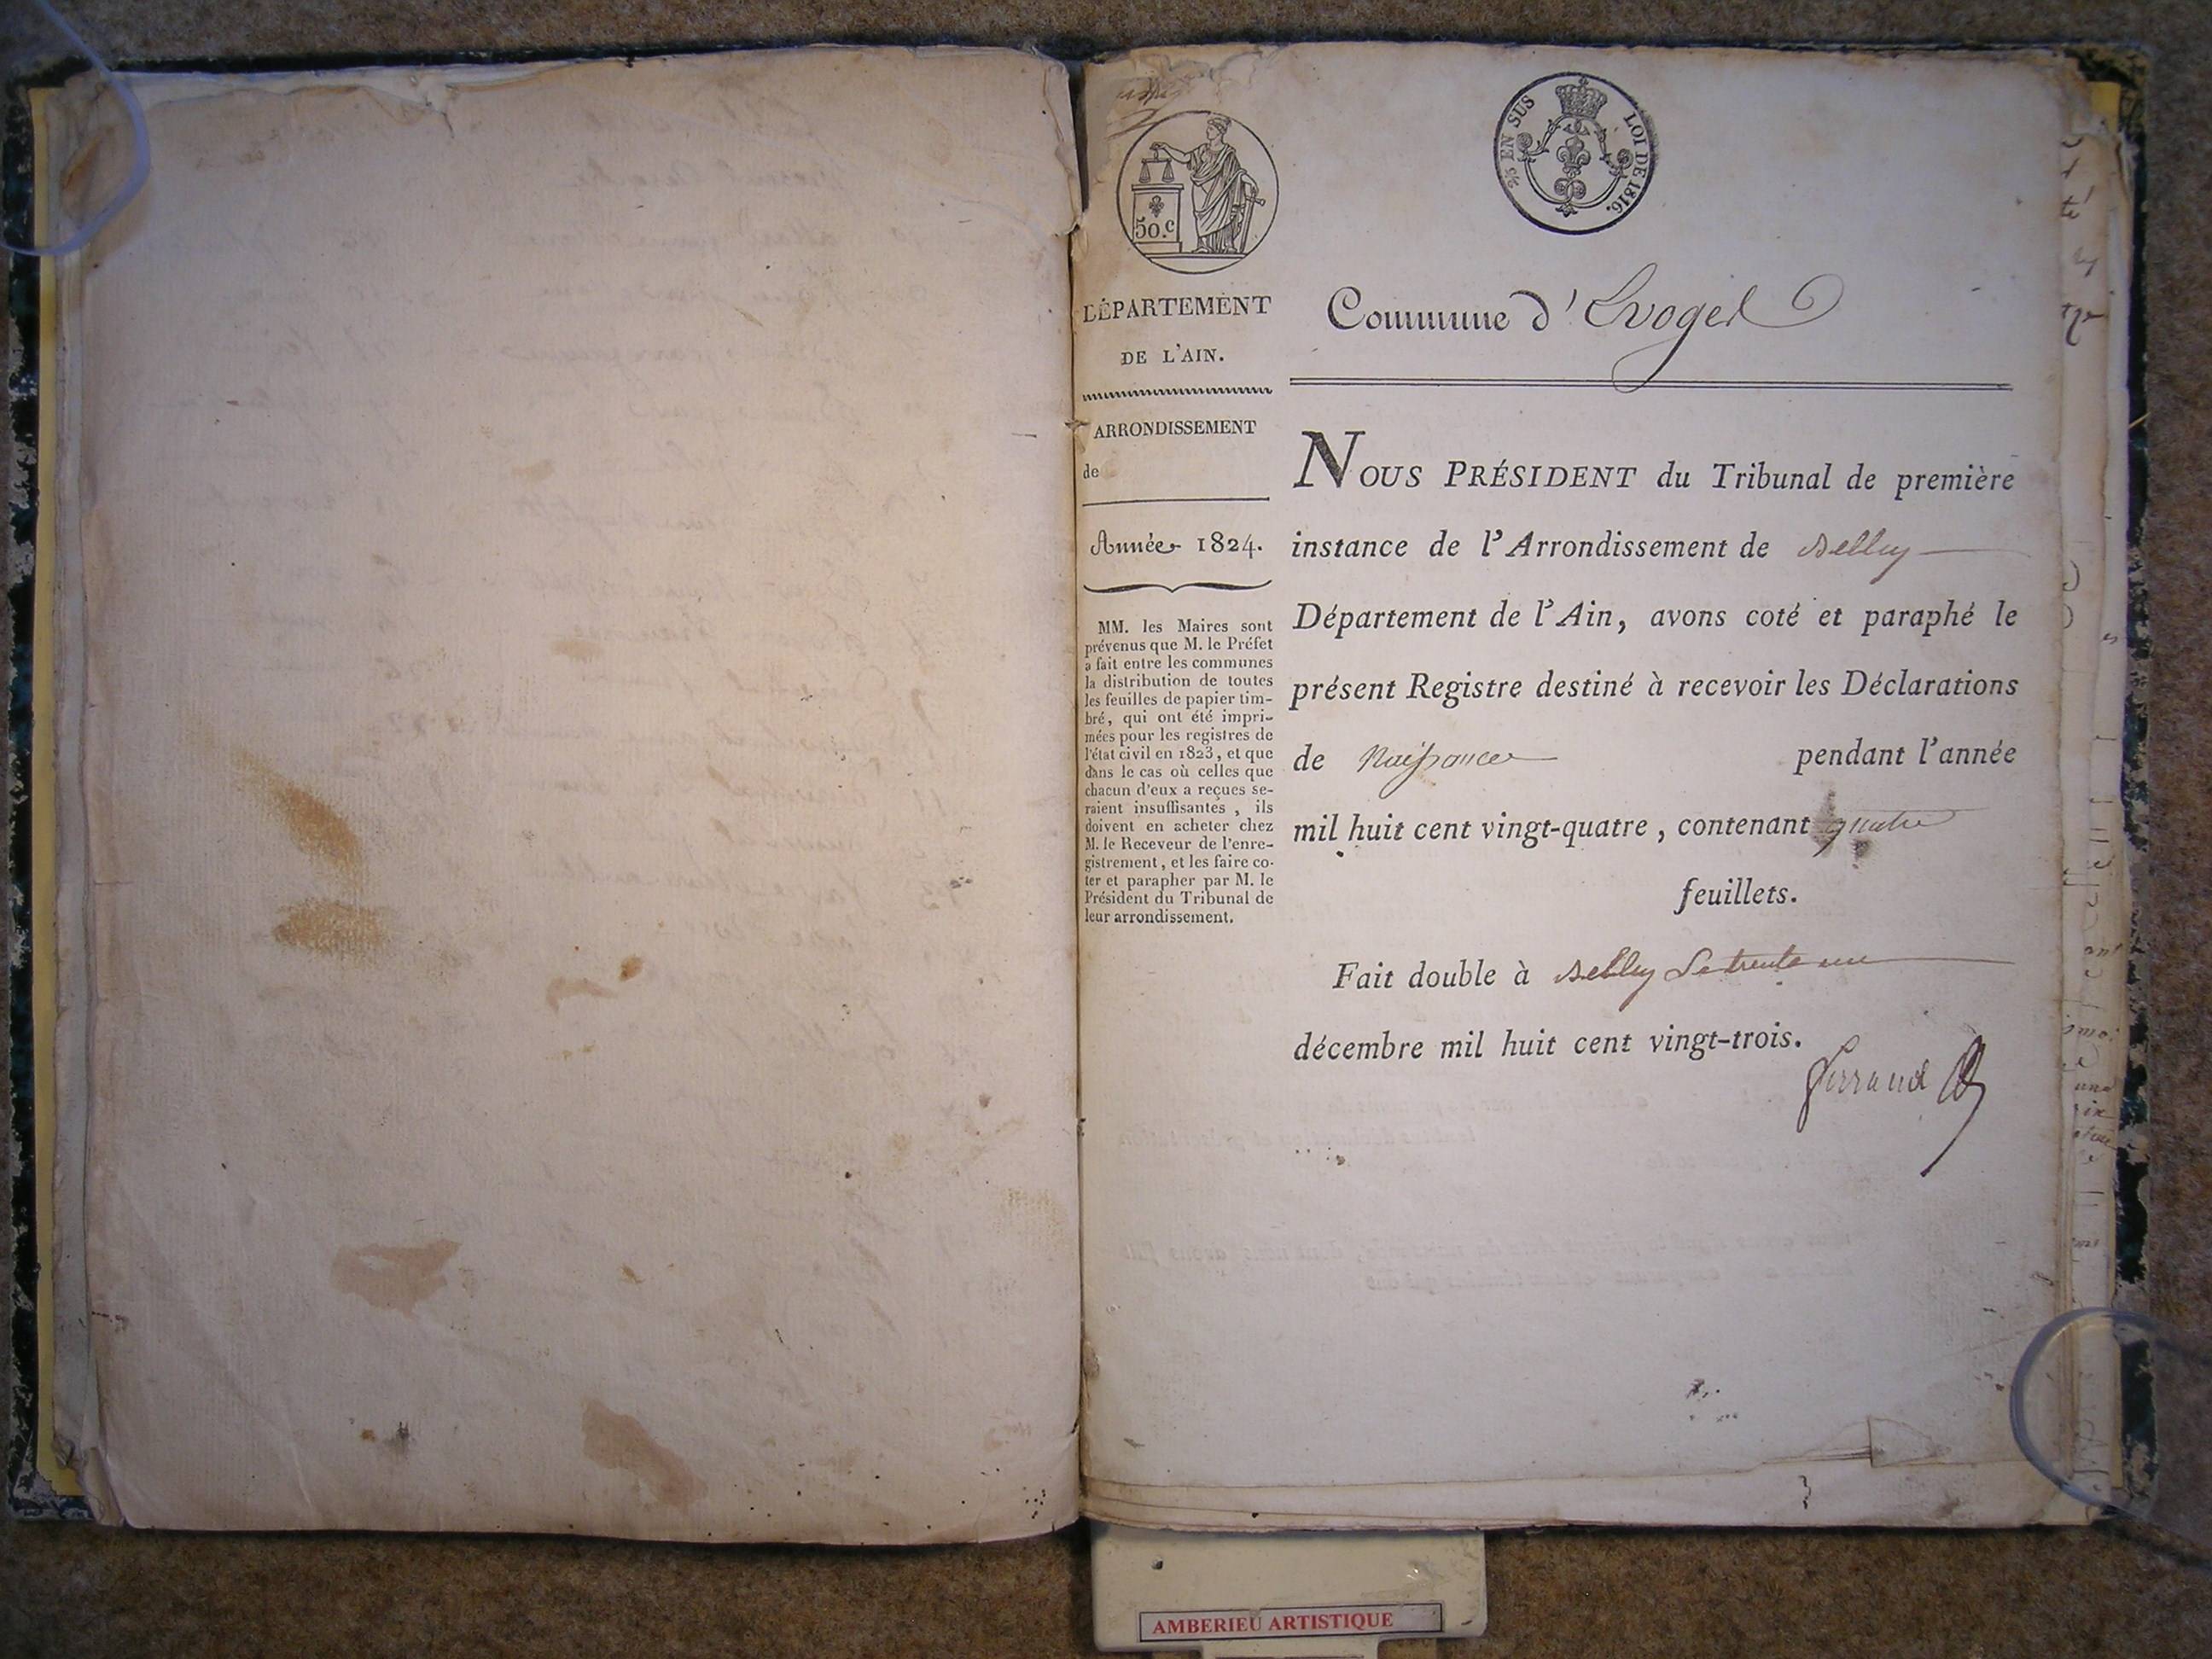 50.c
2/5 EN SUS LOI DE 1816.
DÉPARTEMENT
DE L'AIN.
ARRONDISSEMENT
de
Année 1824.
MM. les Maires sont
prévenus que M. le Préfet
a fait entre les communes
la distribution de toutes
les feuilles de papier tim-
bré, qui ont été impri-
mées pour les registres de
l'état civil en 1823, et que
dans le cas où celles que
chacun d'eux a reçues se-
raient insuffisantes, ils
doivent en acheter chez
M. le Receveur de l'enre-
gistrement, et les faire co-
ter et parapher par M. le
Président du Tribunal de
leur arrondissement.
Commune d'Evoges
NOUS PRÉSIDENT du Tribunal de première
instance de l'Arrondissement de Belley
Département de l'Ain, avons coté et paraphé le
présent Registre destiné à recevoir les Déclarations
de Naissance pendant l'année
mil huit cent vingt-quatre, contenant quatre
feuillets.
Fait double à Belley Le trente un
décembre mil huit cent vingt-trois.
AMBERIEU ARTISTIQUE